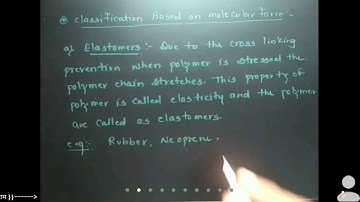 * Classification Based on molecular Force:-
a) Elastomers:- Due to the cross linking
prevention when polymer is stressed the
polymer chain stretches. This property of
polymer is called elasticity and the polymer
are called as elastomers.
e.g:- Rubber, Neoprene.